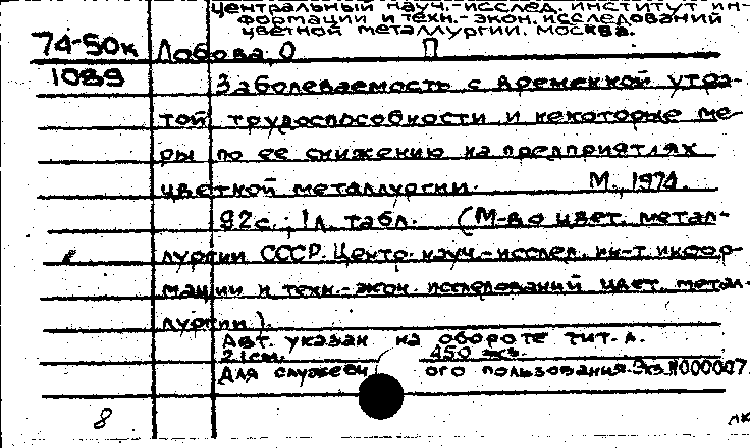 Центральный науч.-исслед. институт ин-
формации и техн.-экон. исследований
цветной металлургии. Москва.
74-50к Лобова, О П
1089 Заболеваемость с временной утра-
той трудоспособности и некоторые ме-
ры по ее снижению на предприятиях
цветной металлургии. М., 1974.
92с.; 1л. табл. (М-во цвет. метал-
лургии СССР. Центр. науч.-исслед. ин-т. инфор-
мации и техн.-экон. исследований цвет. метал-
лургии).
Авт. указан на обороте тит. л.
21см. 450 экз.
Для служебн ого пользования. Экз. №000007.
8